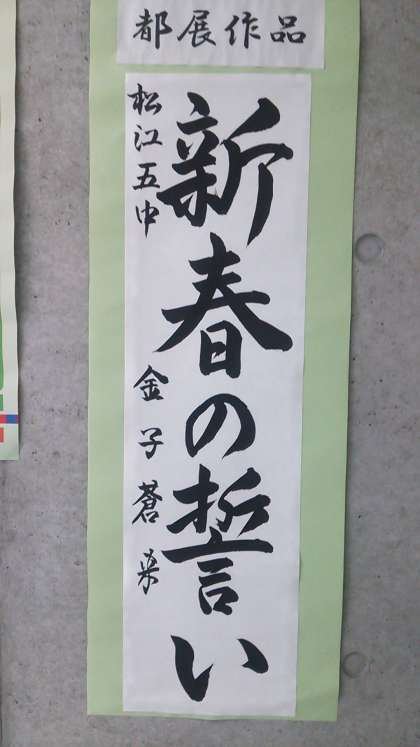 都展作品
新春の誓い
松江五中
金子蒼来